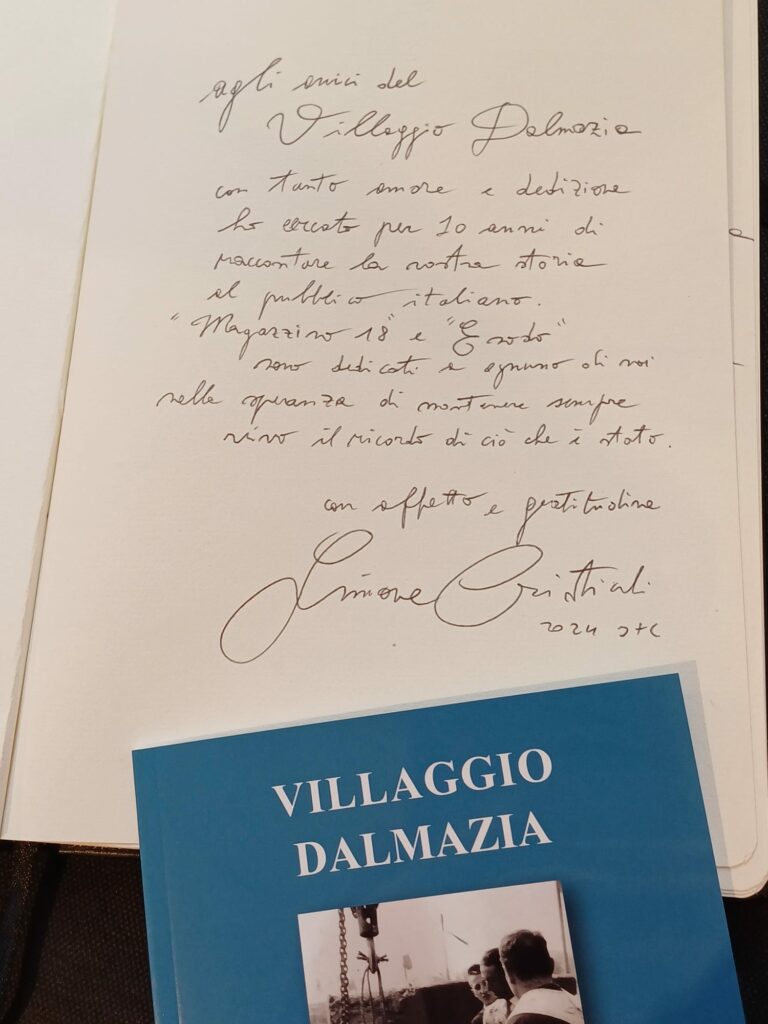 agli amici del
Villaggio Dalmazia
con tanto amore e dedizione
ho cercato per 10 anni di
raccontare la vostra storia
al pubblico italiano.
"Magazzino 18" e "Esodo"
sono dedicati a ognuno di voi
nella speranza di mantenere sempre
vivo il ricordo di ciò che è stato.
con affetto e gratitudine
Simone Cristicchi
2024
VILLAGGIO
DALMAZIA